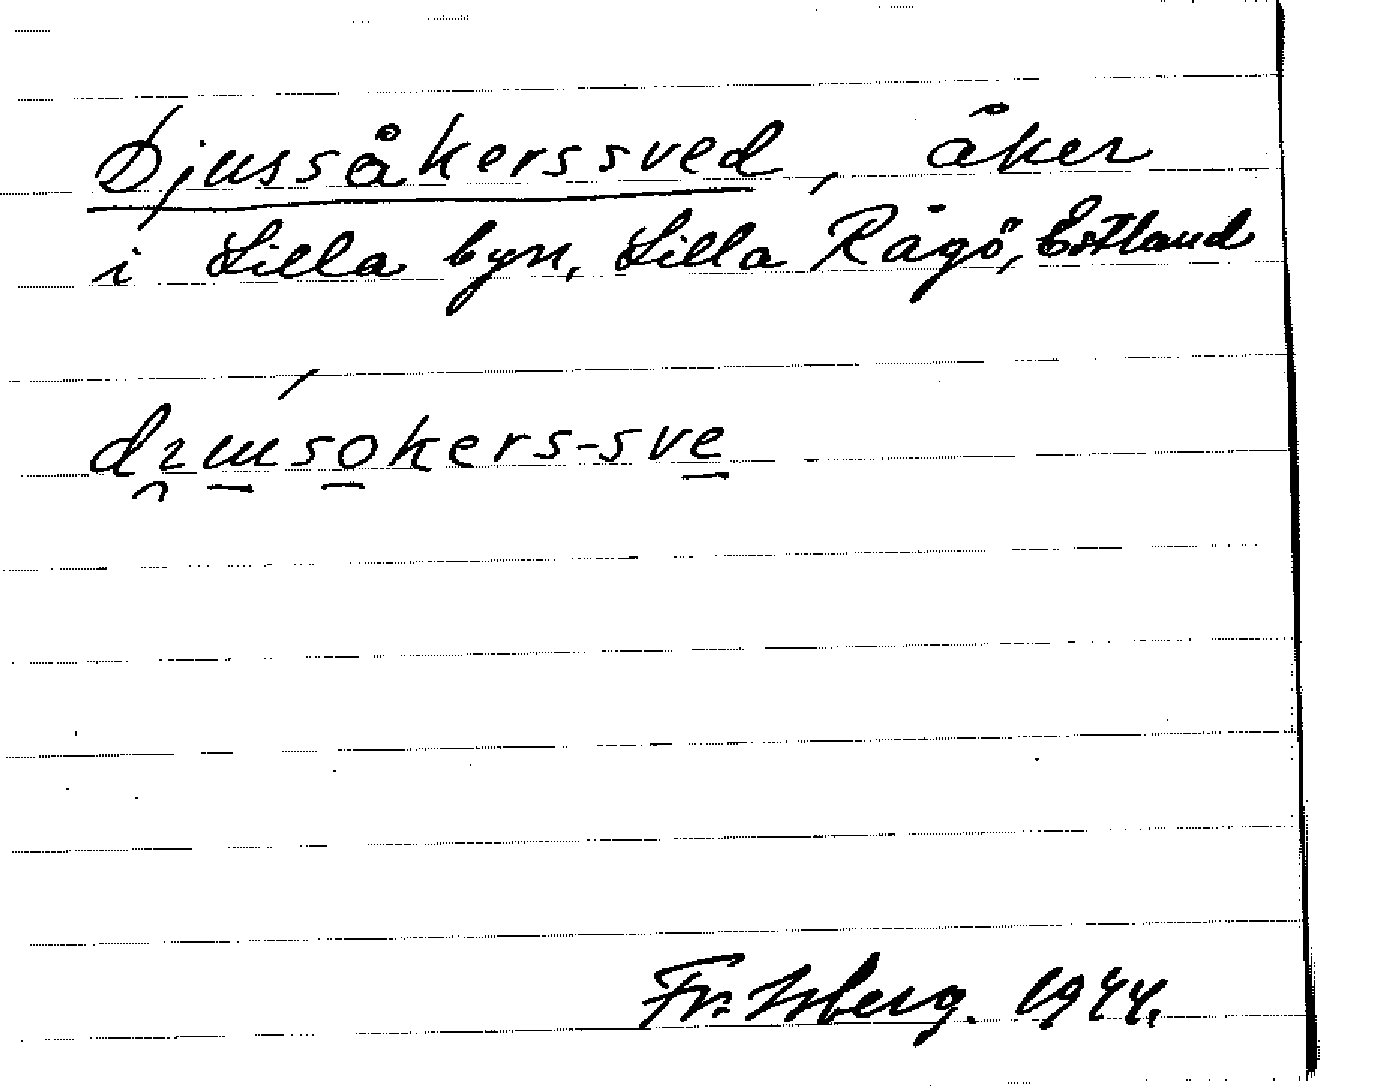 Djussåkerssved, åker
i Lilla byn, Lilla Rågö, Estland
Fr. Isberg. 1944.